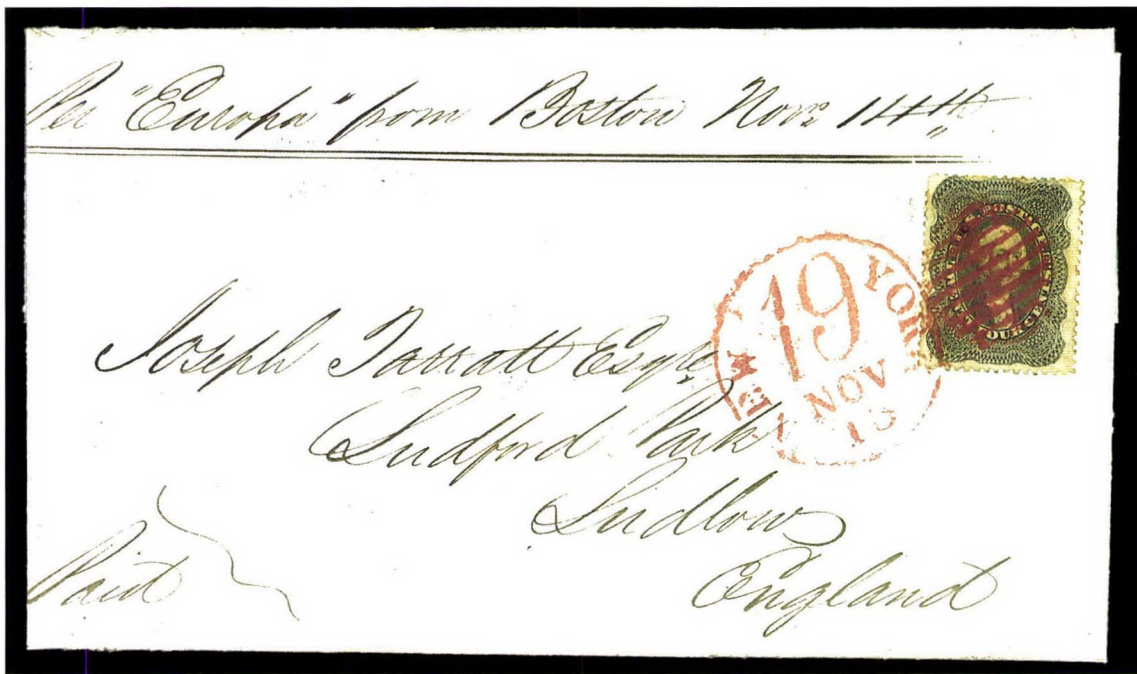 Per "Europa" from Boston Novr 14th
NEW YORK
19
NOV
13
Joseph Tarratt Esqre
Ludford Park
Ludlow
England
Paid